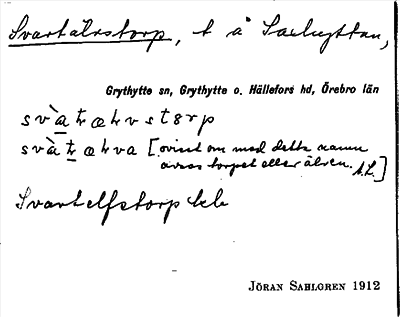 Svartälvstorp, t å Saxhyttan,
Grythytte sn, Grythytte o. Hällefors hd, Örebro län
svàtælvstɵrp
svàtælva [ovisst om med detta namn
avses torpet eller älven. A.L.]
Svartelfstorp kb
JÖRAN SAHLGREN 1912